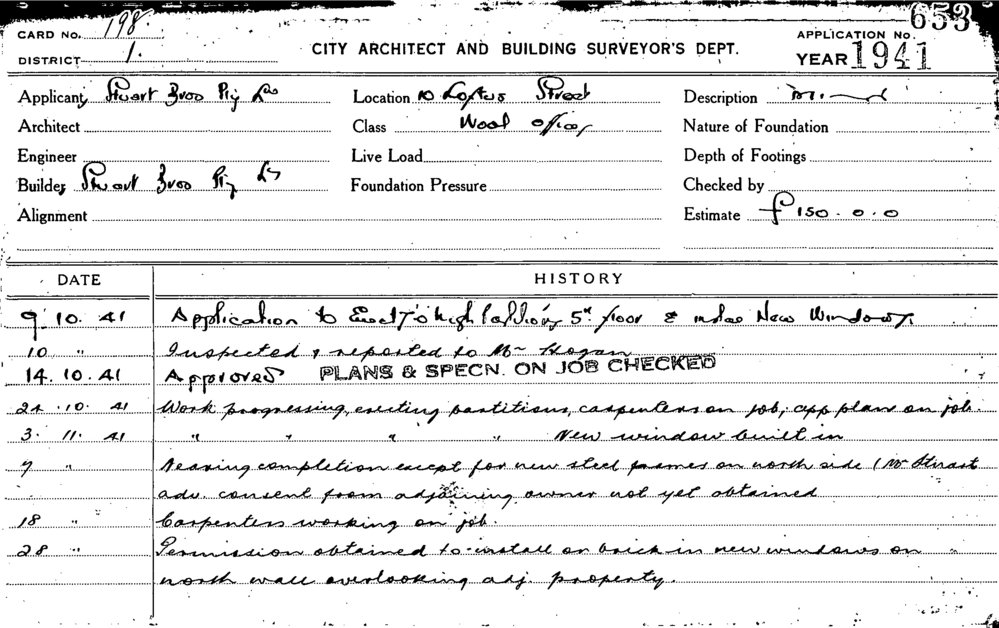 653
CARD No. 198
APPLICATION No.
DISTRICT 1.
CITY ARCHITECT AND BUILDING SURVEYOR'S DEPT.
YEAR 1941
Applicant Stuart Bros Pty Ld
Location 10 Loftus Street
Description
Architect
Class Wool offices
Nature of Foundation
Engineer
Live Load
Depth of Footings
Builder Stuart Bros Pty Ld
Foundation Pressure
Checked by
Alignment
Estimate £150.0.0
DATE
HISTORY
9.10.41 Application to Erect 7'0 high 5th floor & New Windows
10 " Inspected & reported to Mr Hogan
14.10.41 Approved PLANS & SPECN. ON JOB CHECKED
24.10.41 Work progressing, erecting partitions, carpenters on job, app plan on job.
3.11.41 " " " " New window built in
7 " Nearing completion except for new steel frames on north side (Mr Stuart
adv. consent from adjoining owner not yet obtained
18 " Carpenters working on job.
28 " Permission obtained to install or brick in new windows on "
north wall overlooking adj. property.